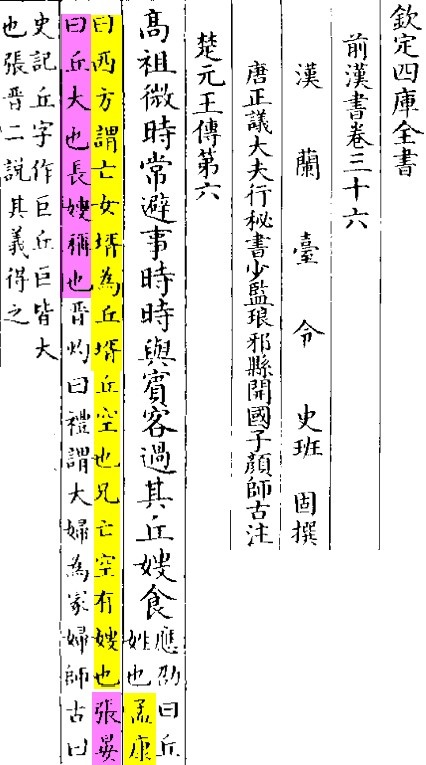 欽定四庫全書
前漢書卷三十六
漢蘭臺令史班固撰
唐正議大夫行秘書少監琅邪縣開國子顏師古注
楚元王傳第六
高祖微時常避事時時與賓客過其丘嫂食
應劭曰丘
姓也孟康
曰西方謂亡女壻為丘壻丘空也兄亡空有嫂也張晏
曰丘大也長嫂稱也晉灼曰禮謂大婦為冢婦師古曰
史記丘字作巨丘巨皆大
也張晉二說其義得之